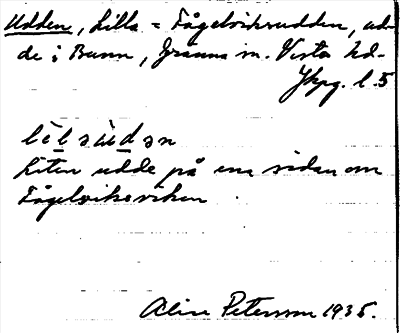 Udden, Lilla = Fågelviksudden, ud-
de i Bunn, Gränna sn. Vista hd.
Jkpg. l. 5
lìlaùdən
Liten udde på ena sidan om
Fågelviksviken
Aline Petersson 1935.